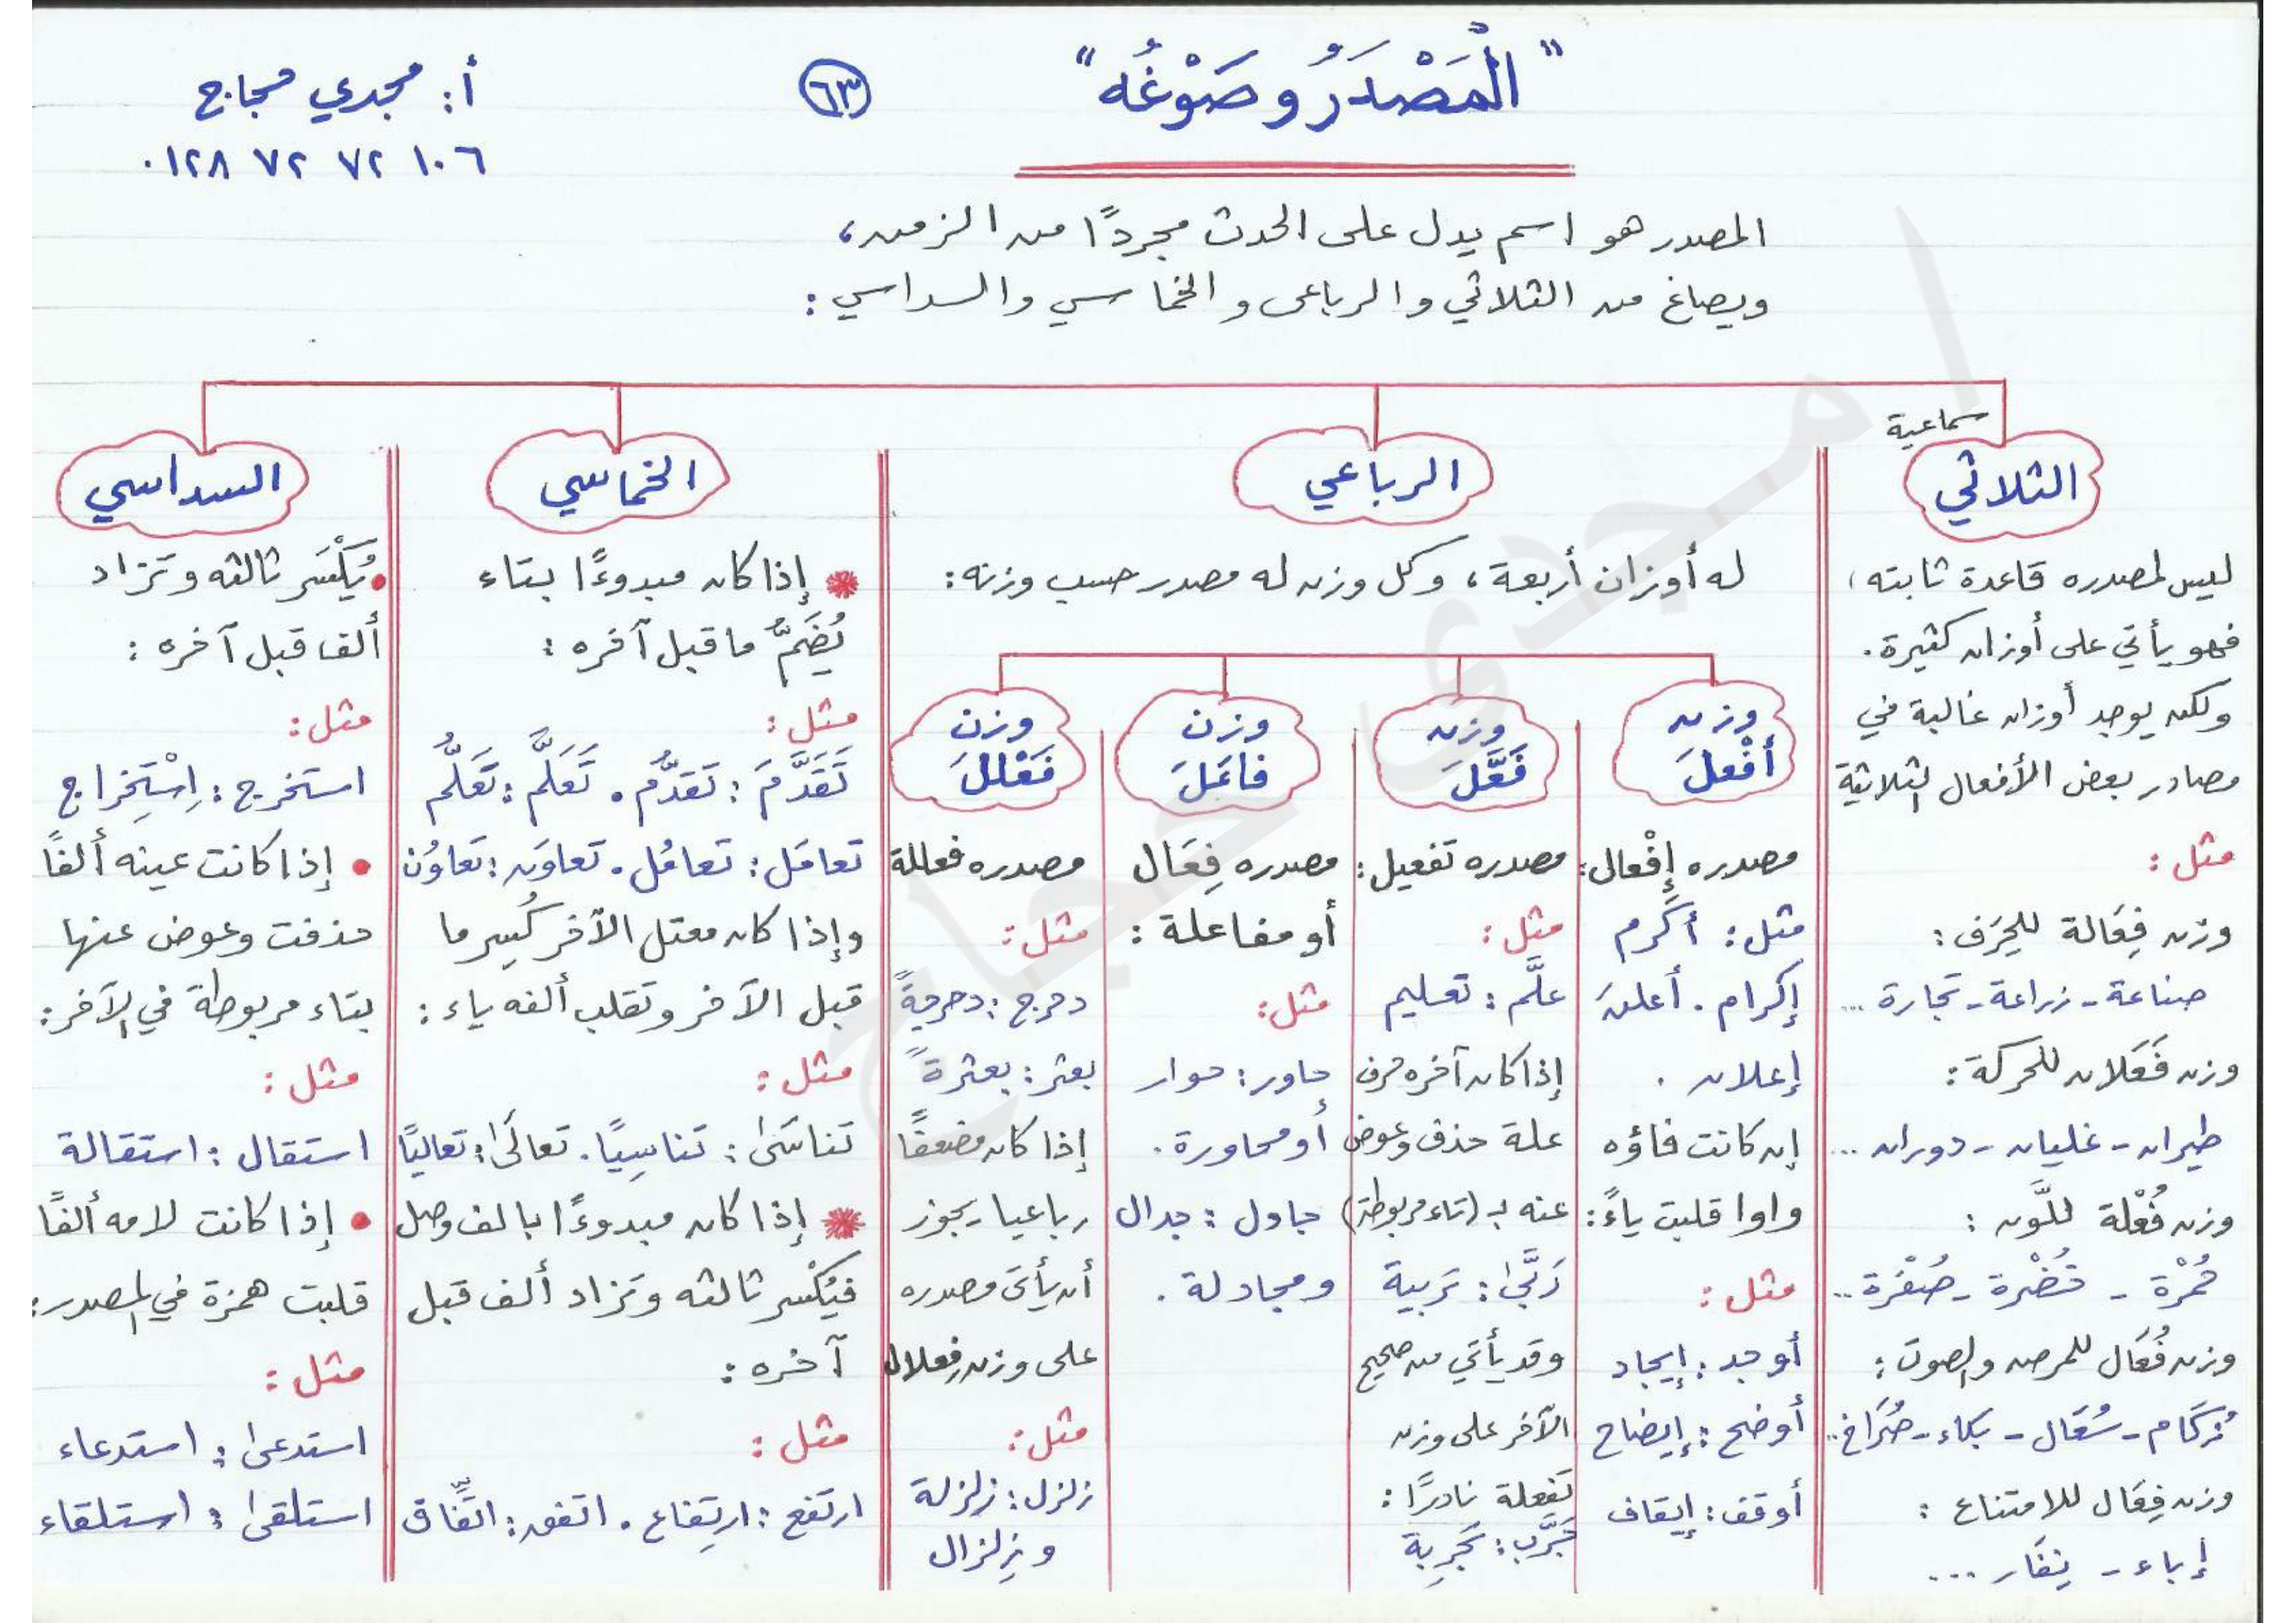 "المَصْدَرُ وصَوْغُه"
٦٣
أ: مجدي حجاج
٠١٢٨ ٧٢ ٧٢ ١٠٦
المصدر هو اسم يدل على الحدث مجردًا من الزمن،
ويصاغ من الثلاثي والرباعى والخماسي والسداسي :
سماعية
الثلاثي
ليس لمصدره قاعدة ثابته،
فهو يأتي على أوزان كثيرة.
ولكن يوجد أوزان غالبة في
مصادر بعض الأفعال الثلاثية
مثل :
وزن فِعَالة للحِرَف :
صناعة - زراعة - تجارة ...
وزن فَعَلان للحركة :
طيران - غليان - دوران ...
وزن فُعْلة للَّون :
حُمْرة - خُضْرة - صُفْرة ..
وزن فُعَال للمرض والصوت :
زُكَام - سُعَال - بكاء - صُرَاخ ..
وزن فِعَال للامتناع :
إباء - نِفَار ...
الرباعي
له أوزان أربعة، وكل وزن له مصدر حسب وزنه :
وزن
أفْعلَ
مصدره إفْعال :
مثل : أكرم
إكرام . أعلن
إعلان .
إن كانت فاؤه
واوا قلبت ياءً :
مثل :
أوجد : إيجاد
أوضح : إيضاح
أوقف : إيقاف
وزن
فَعَّلَ
مصدره تفعيل :
مثل :
علَّم : تعليم
إذا كان آخره حرف
علة حذف وعوض
عنه بـ (تاء مربوطة)
رَبَّىٰ : تَربية
وقد يأتي من صحيح
الآخر على وزن
تَفعِلة نادرًا :
جَرَّب : تَجرِبة
وزن
فاعَلَ
مصدره فِعَال
أو مفاعلة :
مثل :
حاور : حوار
أو محاورة .
جادل : جدال
ومجادلة .
وزن
فَعْللَ
مصدره فعللة
مثل :
دحرج : دحرجةً
بعثر : بعثرةً
إذا كان مضعفًا
رباعيا يجوز
أن يأتى مصدره
على وزن فِعلال
مثل :
زلزل : زلزلة
و زِلزال
الخماسي
إذا كان مبدوءًا بتاء
يُضَمُّ ما قبل آخره :
مثل :
تَقَدَّمَ : تَقَدُّم . تَعَلَّم : تَعَلُّم
تعامَل : تعامُل . تعاوَن : تعاوُن
وإذا كان معتل الآخر كُسِر ما
قبل الآخر وتقلب ألفه ياء :
مثل :
تناسَىٰ : تناسِيًا . تعالَىٰ : تعاليًا
إذا كان مبدوءًا بالف وصل
فيُكْسر ثالثه وتزاد ألف قبل
آخره :
مثل :
ارتفع : ارتِفاع . اتفق : اتِّفاق
السداسي
• يُكْسَر ثالثه وتزاد
ألف قبل آخره :
مثل :
استخرج : اِسْتِخراج
• إذا كانت عينه ألفًا
حذفت وعوض عنها
بتاء مربوطة في الآخر :
مثل :
استقال : استقالة
• إذا كانت لامه ألفًا
قلبت همزة في المصدر :
مثل :
استدعىٰ : استدعاء
استلقىٰ : استلقاء
أ / مجدى حجاج